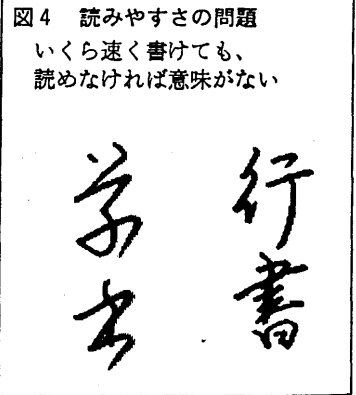 図4 読みやすさの問題
いくら速く書けても、
読めなければ意味がない
行書
草书